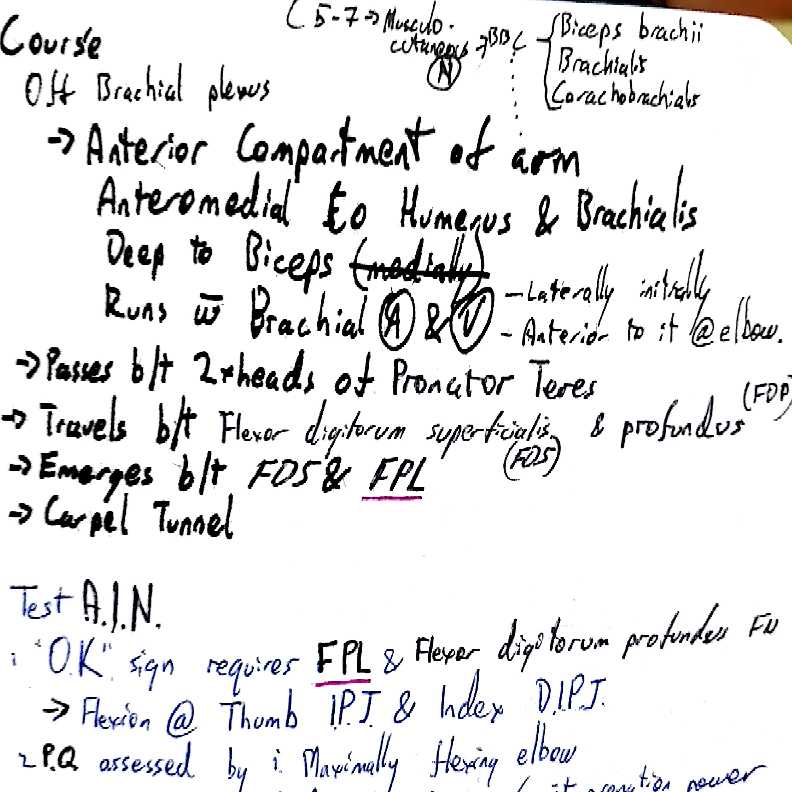 C5-7 → Musculo-
cutaneous → BBC { Biceps brachii
(N)
Brachialis
Corachobrachialis
Course
Off Brachial plexus
→ Anterior Compartment of arm
Anteromedial to Humerus & Brachialis
Deep to Biceps (medially)
Runs w̅ Brachial (A) & (V) - Laterally initially
- Anterior to it @ elbow.
→ Passes b/t 2 x heads of Pronator Teres
→ Travels b/t Flexor digitorum superficialis (FDS) & profundus (FDP)
→ Emerges b/t FDS & FPL
→ Carpel Tunnel
Test A.I.N.
1 "OK" sign requires FPL & Flexor digitorum profundus
→ Flexion @ Thumb I.P.J. & Index D.I.P.J.
2 P.Q. assessed by i. Maximally flexing elbow
pronation power